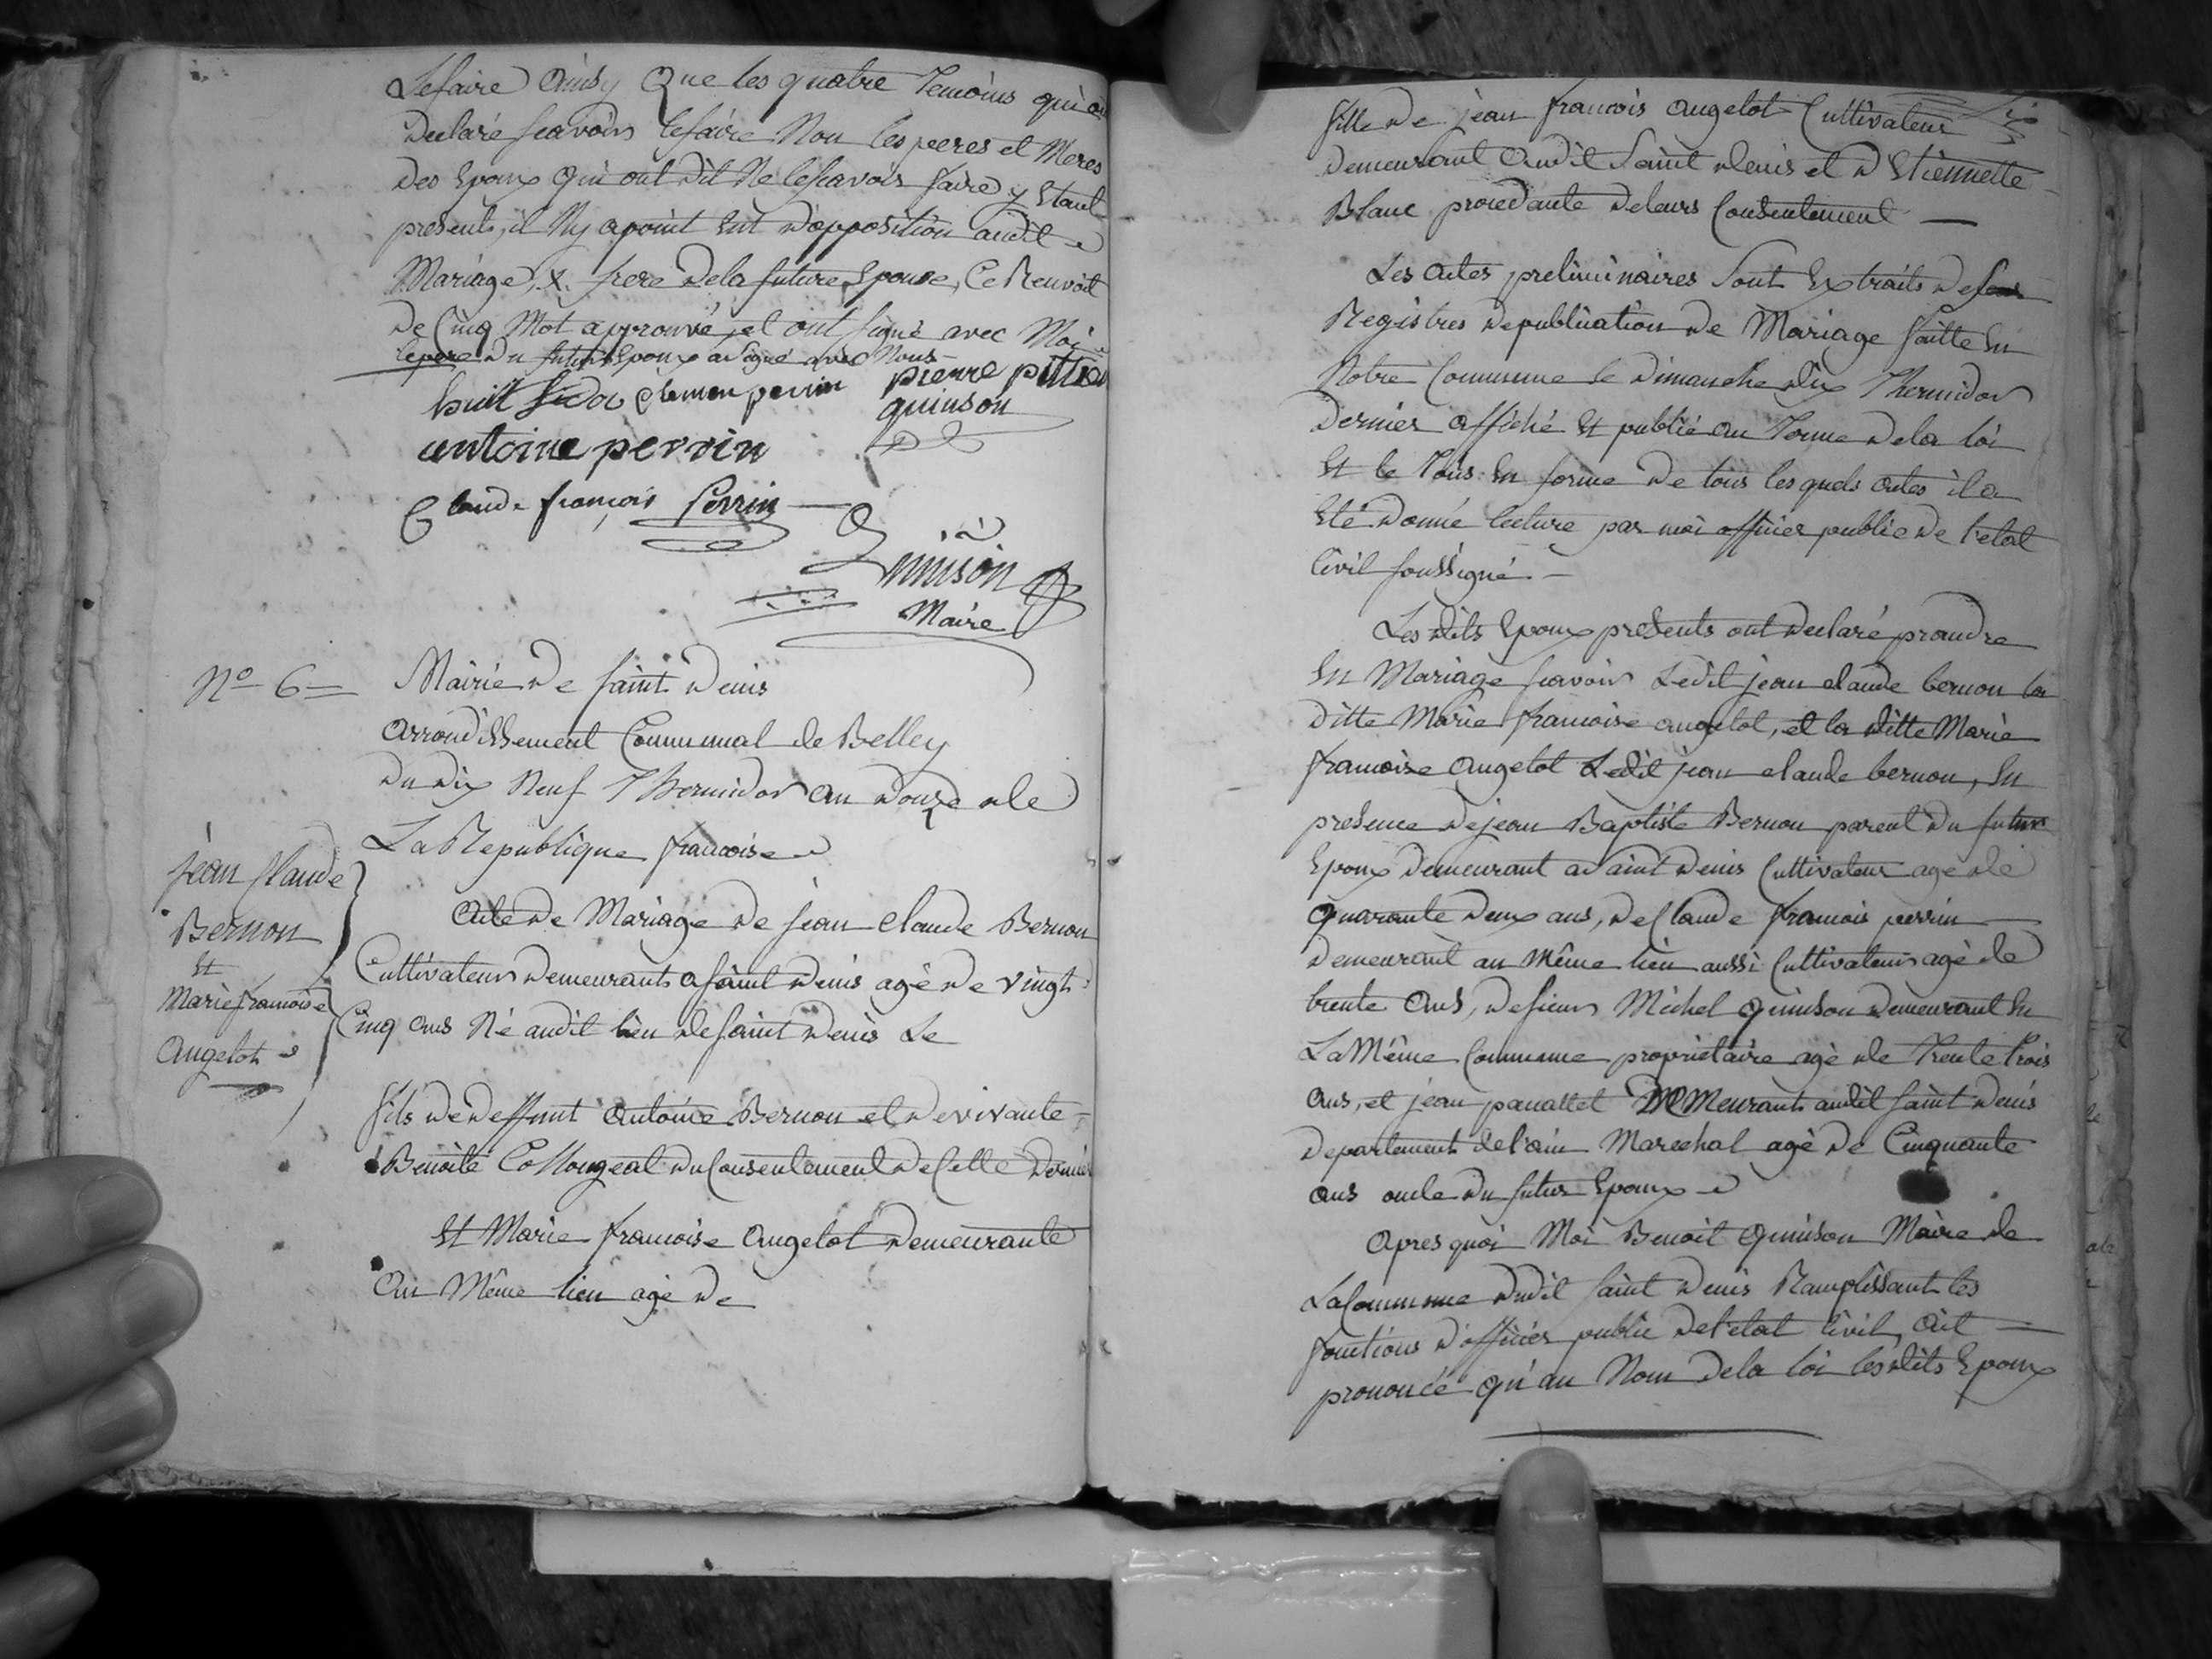 Lefaire Ainsy Que les quatre Temoins qui on
Declaré scavoir lefaire Non les peres et Meres
des Epoux Qui ont dit Ne lescavoir faire y Etant
presents, il Ny apoint Eut d'opposition audit
Mariage, X. frere dela future Epouse, Ce Renvoit
De Cinq Mot approuvé, et ont signé avec Moi
lepere du futur Epoux a signé avec Nous
huit clemen perrin pierre
quinson
antoine perrin
Claude françois Perrin
Quinson
Maire
Nº 6 = Mairie de saint Denis
arrondissement Communal de Belley
du dix Neuf Thermidor an douze de
La Republique francoise
jean Claude
Bernon
Et
Marie francoise
Angelot
Acte de Mariage de jean claude Bernon
Cultivateur demeurant a saint denis agé de vingt
Cinq ans Né audit lieu de saint denis Le
fils de deffunt Antoine Bernon et de vivante
Benoite Collongeat du Consentement de Celle derniere
Et Marie francoise Angelot demeurante
Au Même lieu agé de
fille de jean francois Angelot Cultivateur
demeurant Audit Saint denis et d'Etiennette
Blanc procedante deleurs Consentement
Les Actes preliminaires Sont Extraits des
Registres depublication de Mariage faitte En
Notre Commune le dimanche dix Thermidor
dernier affiché Et publié au Terme dela loi
Et le Tous En forme de tous les quels actes il a
Eté donné lecture par moi officier public de l'etat
Civil soussigné
Les dits Epoux presents ont declaré prandre
En Mariage scavoir Ledit jean claude bernon la
ditte Marie francoise angelot, et la ditte Marie
francoise Angelot Ledit jean claude bernon, En
presence dejean Baptiste Bernon parent du futur
Epoux demeurant a Saint denis Cultivateur agé de
Quarante deux ans, de Claude francois perrin
demeurant au Même lieu aussi Cultivateur agé de
trente Ans, desieur Michel Quinson demeurant En
La Même Commune proprietaire agé de trente trois
Ans, et jean panattet DMeurant audit saint denis
departement del'ain Marechal agé de Cinquante
Ans oncle du futur Epoux
Apres quoi Moi Benoit Quinson Maire de
La Commune dudit saint denis Ramplissant les
fonctions d'officier public del'etat Civil, Ait
prononcé qu'au Nom dela loi les dits Epoux